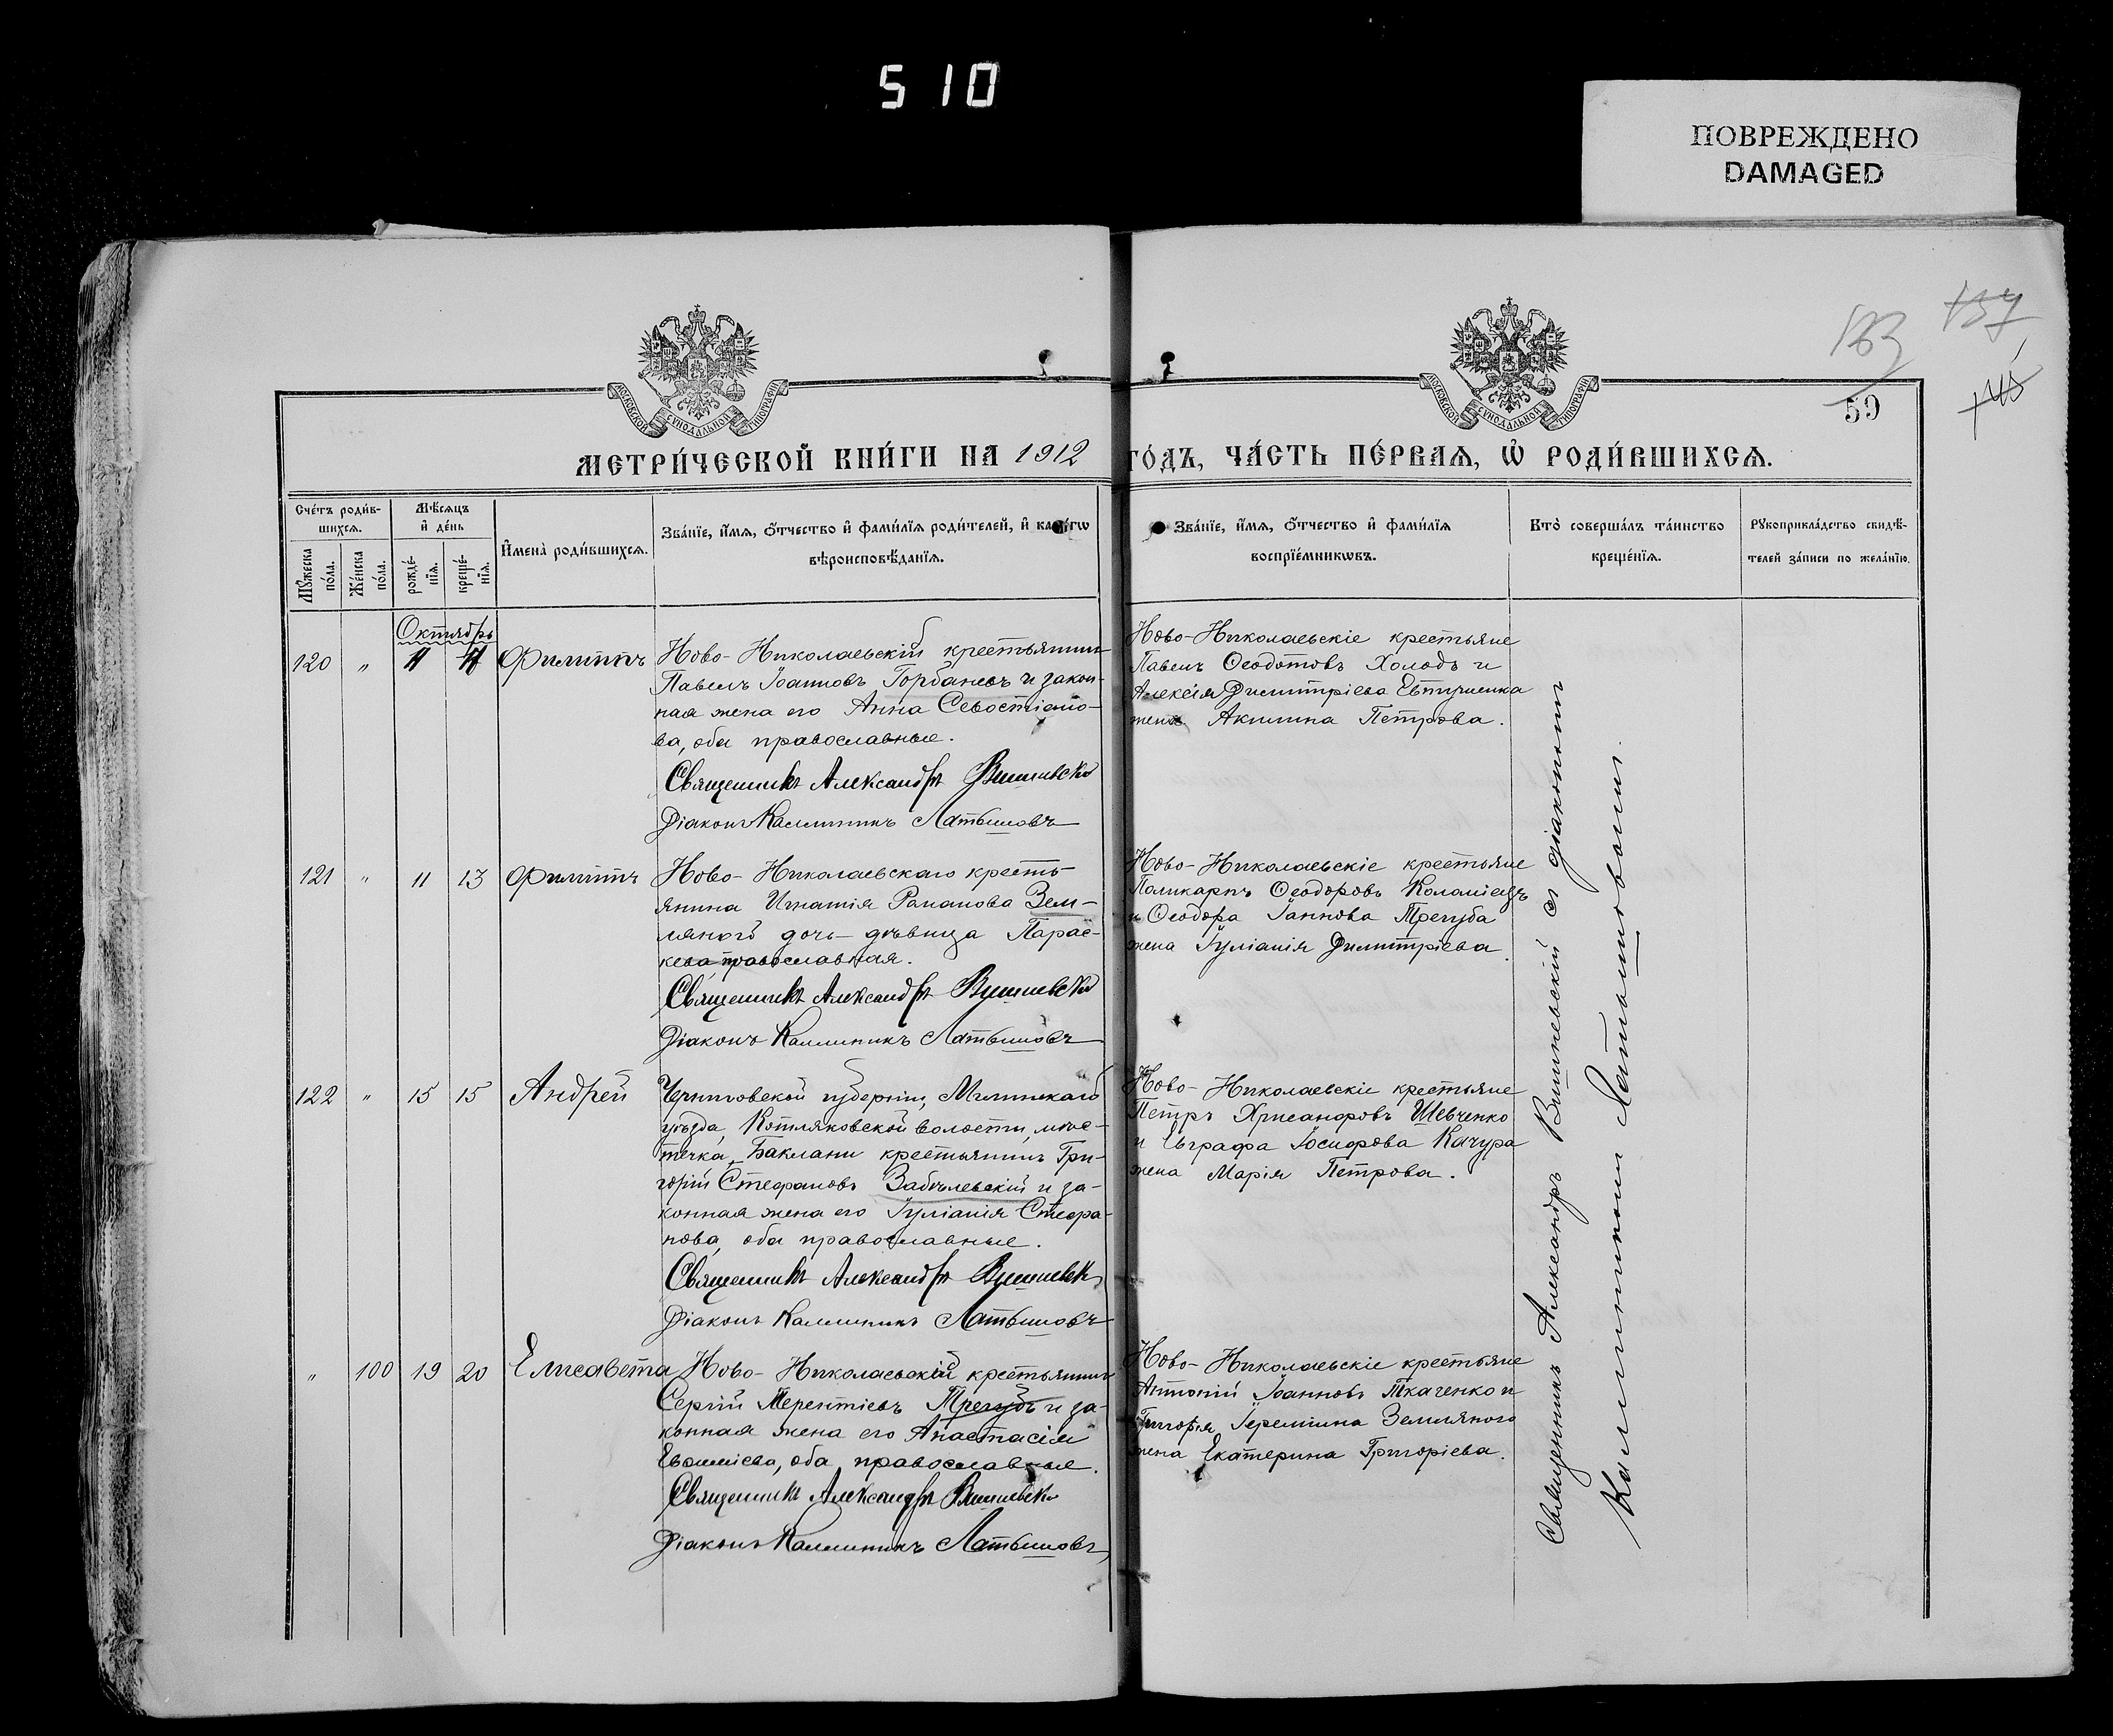 510
ПОВРЕЖДЕНО
DAMAGED
59
МОСКОВСКОЙ СУНОДАЛЬНОЙ ТИПОГРАФІИ
МОСКОВСКОЙ СУНОДАЛЬНОЙ ТИПОГРАФІИ
МЕТРИ́ЧЕСКОЙ КНИ́ГИ НА 1912 ГО́ДЪ, ЧА́СТЬ ПЕ́РВАѦ, Ѡ҆ РОДИ́ВШИХСѦ.
Сче́тъ роди́в-
шихсѧ.
Мꙋ́жеска по́ла.
Же́нска по́ла.
Мѣ́сѧцъ и҆ де́нь
рожде́-нїѧ.
креще́-нїѧ.
И҆мена̀ роди́вшихсѧ.
Зва́нїе, и҆́мѧ, ѻ҆́тчество и҆ фами́лїѧ роди́телей, и҆ како́гѡ
вѣроисповѣ́данїѧ.
Зва́нїе, и҆́мѧ, ѻ҆́тчество и҆ фами́лїѧ
воспрїе́мникѡвъ.
Кто̀ соверша́лъ та́инство
креще́нїѧ.
Рꙋкоприкла́дство свидѣ́-
телей за́писи по жела́нїю.
Октябрь
120 " 11 11 Филиппъ
Ново-Николаевскій крестьянинъ
Павелъ Іоанновъ Горбаневъ и закон-
ная жена его Анна Севостіано-
ва, оба православные.
Священникъ Александръ Вишневскій
Діаконъ Каллиникъ Латышовъ
Ново-Николаевскіе крестьяне
Павелъ Ѳеодотовъ Холодъ и
Алексія Димитріева Евтушенка
жена Акилина Петрова.
121 " 11 13 Филиппъ
Ново-Николаевскаго кресть-
янина Игнатія Романова Зем-
ляного дочь-дѣвица Парас-
кева, православная.
Священникъ Александръ Вишневскій
Діаконъ Каллиникъ Латышовъ
Ново-Николаевскіе крестьяне
Поликарпъ Ѳеодоровъ Коломіецъ
и Ѳеодора Іаннова Трегуба
жена Іуліанія Димитріева.
122 " 15 15 Андрей
Черниговской губерніи, Мглинскаго
уѣзда, Котляковской волости, мѣс-
течка, Баклани крестьянинъ Гри-
горій Стефановъ Забѣлевскій и за-
конная жена его Іуліанія Стефа-
нова, оба православные.
Священникъ Александръ Вишневск
Діаконъ Каллиникъ Латышовъ
Ново-Николаевскіе крестьяне
Петръ Хрисанфовъ Шевченко
и Евграфа Іосифова Качура
жена Марія Петрова.
" 100 19 20 Елисавета
Ново-Николаевскій крестьянинъ
Сергій Терентіевъ Трегубъ и за-
конная жена его Анастасія
Евфиміева, оба православные.
Священникъ Александръ Вишневск
Діаконъ Каллиникъ Латышовъ
Ново-Николаевскіе крестьяне
Антоній Іоанновъ Ткаченко и
Григорія Іереміина Земляного
жена Екатерина Григоріева.
Священникъ Александръ Вишневскій съ діакономъ
Каллиникомъ Латышовымъ.